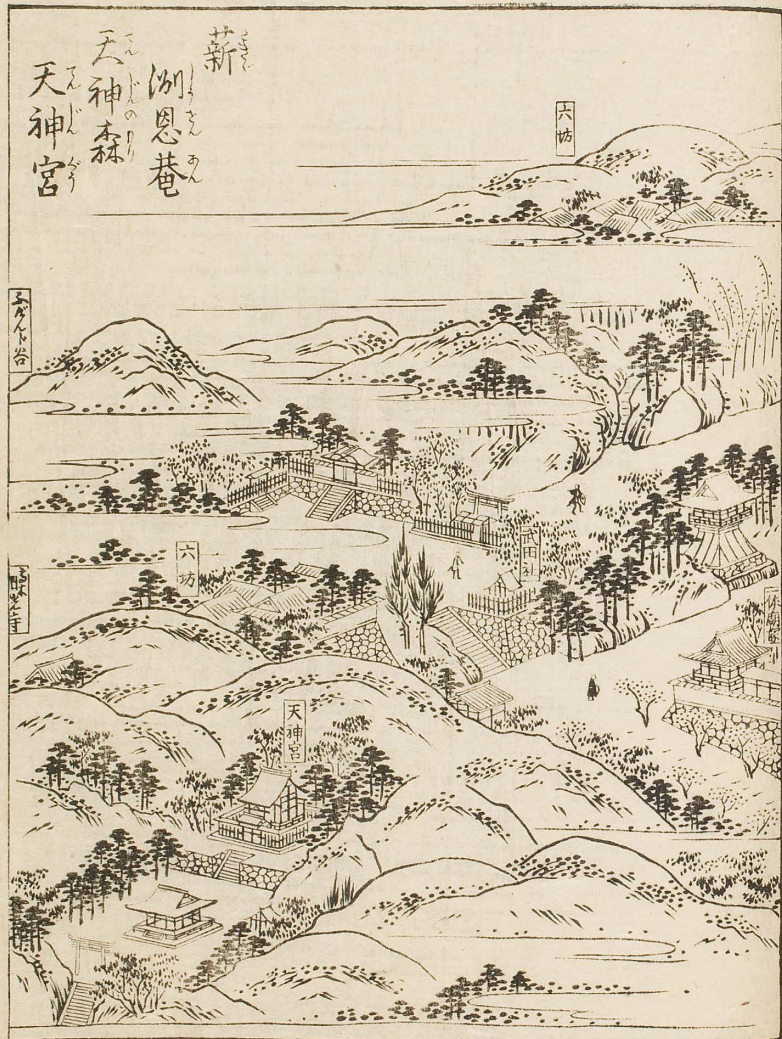 薪
たきぎ
洲恩菴
しうをんあん
天神森
てんじんのもり
天神宮
てんじんぐう
六坊
武田社
六坊
天神宮